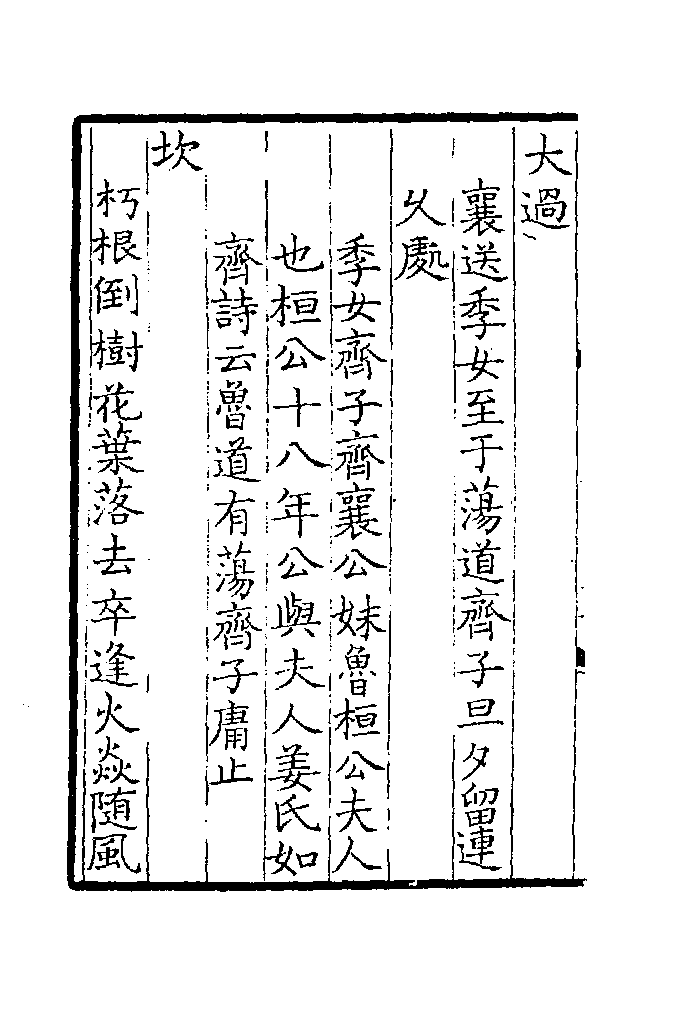 大過
襄送季女至于蕩道齊子旦夕留連
乆處
季女齊子齊襄公妹魯桓公夫人
也桓公十八年公與夫人姜氏如
齊詩云魯道有蕩齊子庸止
坎
朽根倒樹花葉落去卒逢火焱随風